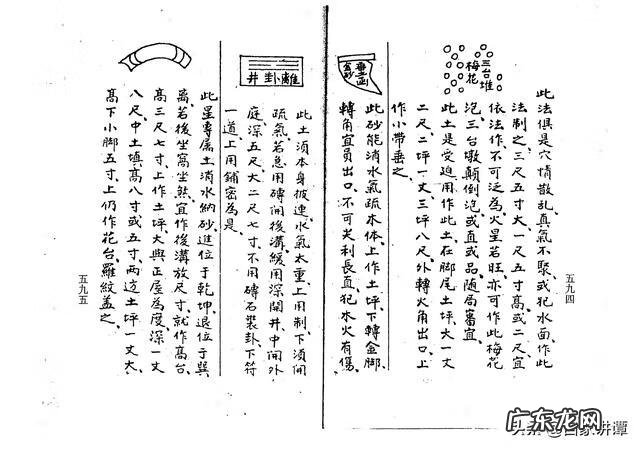 五九四
三台堆
梅花
此法俱是穴情散乱真氣不聚或犯水面作此
法制之、三尺五寸大一尺五寸高或二尺宜
依法作不可泛為火星若旺亦可作此梅花
泡三台墩顛倒泡或直或品随局審宜、
此土是受迫用作此土在脚尾土坪大一丈
二尺二坪一丈三坪八尺外轉火角出口上
作小帶垂之、
垂土
金砂
此砂能消水氣疏本体上作土坪下轉金脚、
轉角宜員出口、不可尖利長直犯木火有傷、
離卦井
此土須本身披連水氣太重上用制下須開
疏氣若急用磚開後溝緩用深開井中開外
庭深五尺大二尺七寸不用磚石裝卦下符
一道上用鋪密為是
此星專属土消水納砂進位于乾坤退位于巽
离若後坐窩坐煞宜作後溝放尺寸就作高台、
高三尺七寸上作土坪大與正屋為度深一丈
八尺中土填高八寸或五寸两边土坪一丈大、
高下小脚五寸上仍作花台羅紋盖之、
五九五
头条@百家讲谭
广东龙网